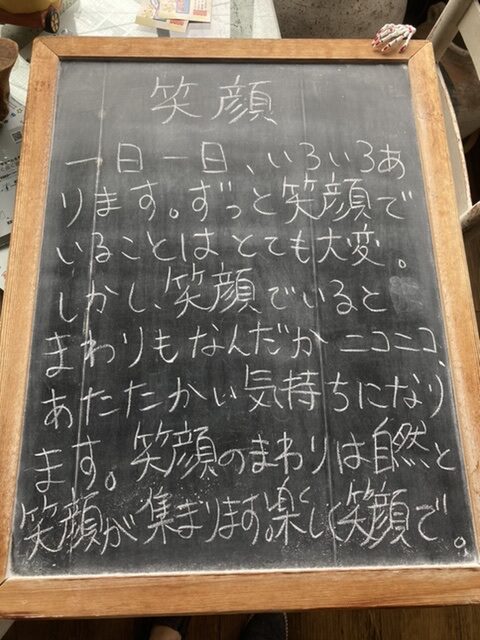 笑顔
一日一日、いろいろあ
ります。ずっと笑顔で
いることはとても大変。
しかし、笑顔でいると
まわりもなんだかニコニコ、
あたたかい気持ちになり
ます。笑顔のまわりは自然と
笑顔が集まります。楽しく笑顔で。